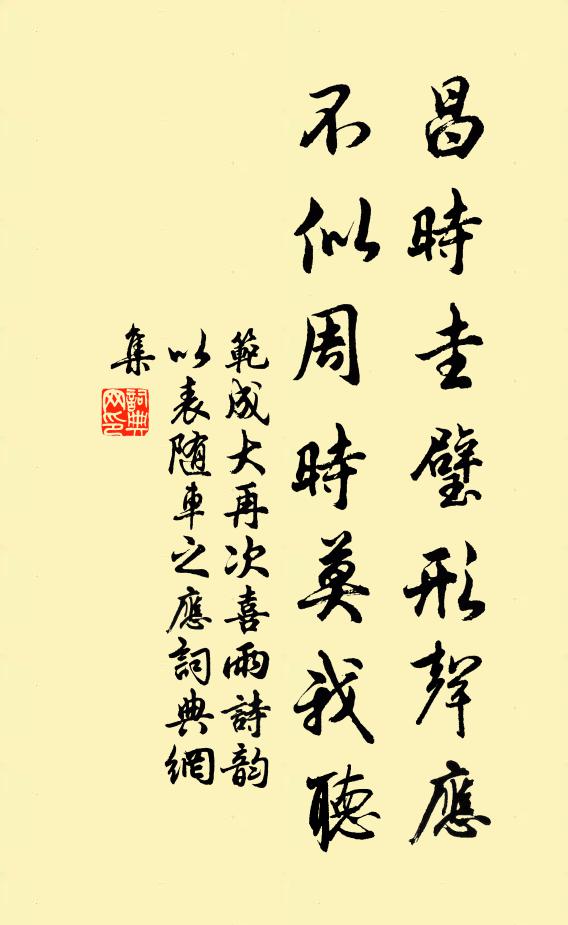 昌時圭璧形聲應
不似周時莫我聽
範成大再次喜雨詩韵
以表随車之應詞典網
集
詞典
网印